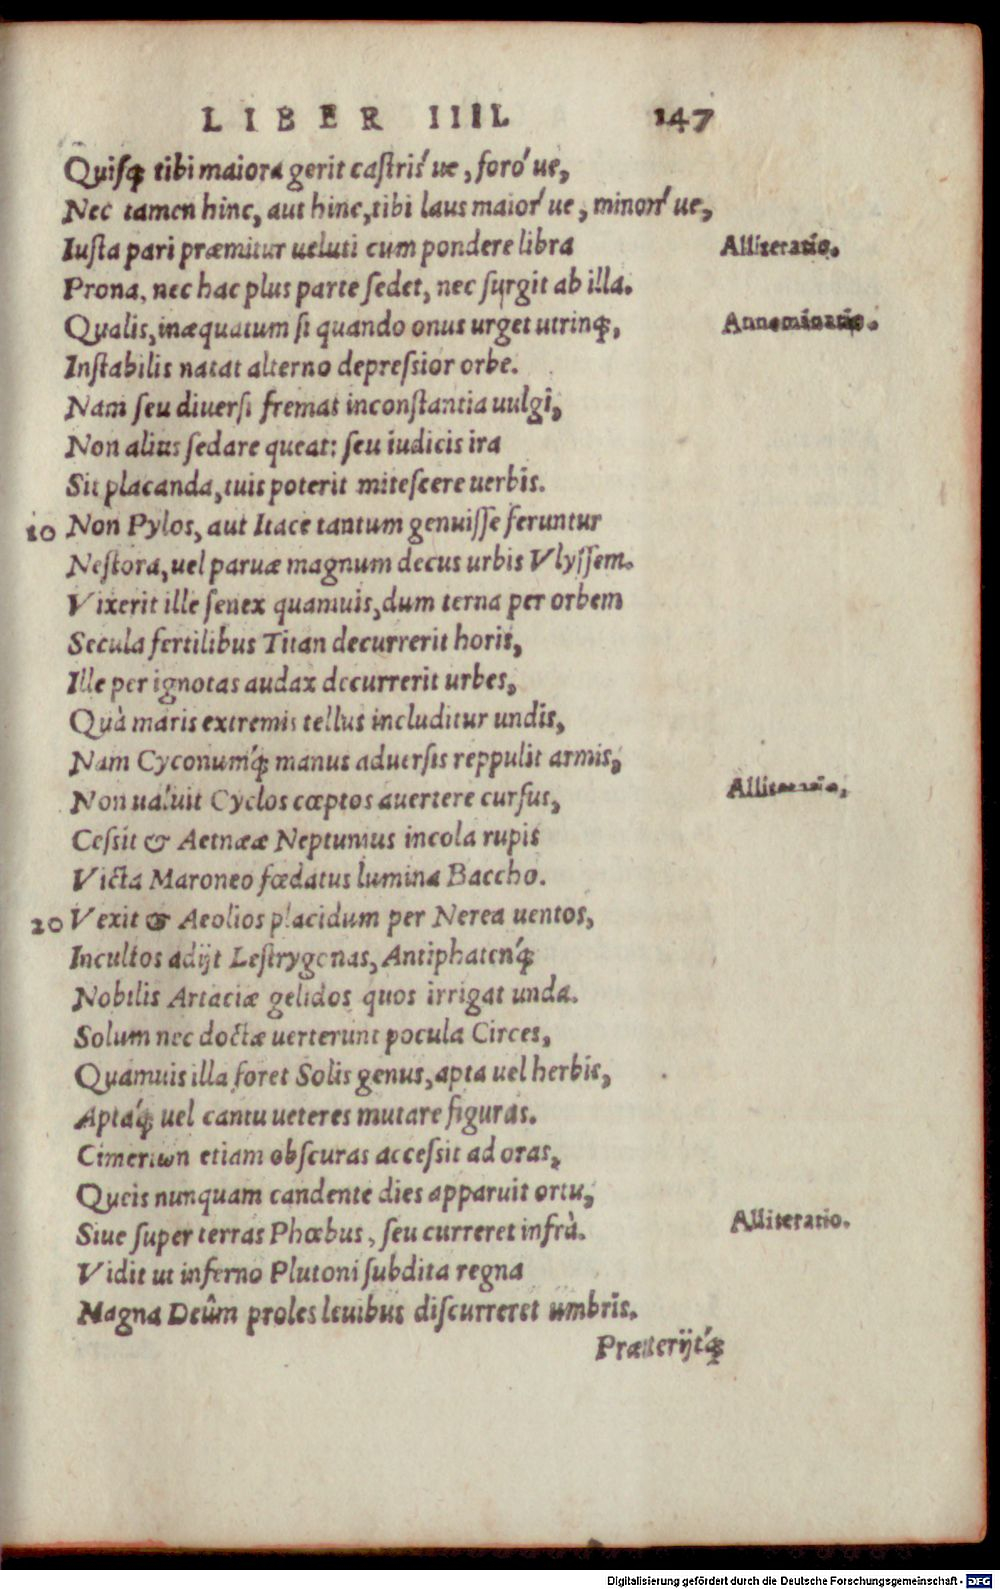 LIBER IIII. 147
Quisq; tibi maiora gerit castris' ue, foro' ue,
Nec tamen hinc, aut hinc, tibi laus maior' ue, minorr' ue,
Iusta pari præmitur ueluti cum pondere libra
Alliteratio.
Prona, nec hac plus parte sedet, nec surgit ab illa.
Qualis, inæquatum si quando onus urget utrinq;,
Annominatio.
Instabilis natat alterno depressior orbe.
Nam seu diuersi fremat inconstantia uulgi,
Non alius sedare queat: seu iudicis ira
Sit placanda, tuis poterit mitescere uerbis.
10 Non Pylos, aut Itace tantum genuisse feruntur
Nestora, uel paruæ magnum decus urbis Vlyssem.
Vixerit ille senex quamuis, dum terna per orbem
Secula fertilibus Titan decurrerit horis,
Ille per ignotas audax decurrerit urbes,
Quà maris extremis tellus includitur undis,
Nam Cyconum'q; manus aduersis reppulit armis,
Non ualuit Cyclos cœptos auertere cursus,
Alliteratio,
Cessit & Aetnææ Neptunius incola rupis
Victa Maroneo fœdatus lumina Baccho.
20 Vexit & Aeolios placidum per Nerea uentos,
Incultos adijt Lestrygonas, Antiphaten'q;
Nobilis Artaciæ gelidos quos irrigat unda.
Solum nec doctæ uerterunt pocula Circes,
Quamuis illa foret Solis genus, apta uel herbis,
Aptá'q; uel cantu ueteres mutare figuras.
Cimeriωn etiam obscuras accessit ad oras,
Queis nunquam candente dies apparuit ortu,
Siue super terras Phœbus, seu curreret infrà.
Alliteratio.
Vidit ut inferno Plutoni subdita regna
Magna Deûm proles leuibus discurreret umbris.
Præterijt'q;
Digitalisierung gefördert durch die Deutsche Forschungsgemeinschaft - DFG